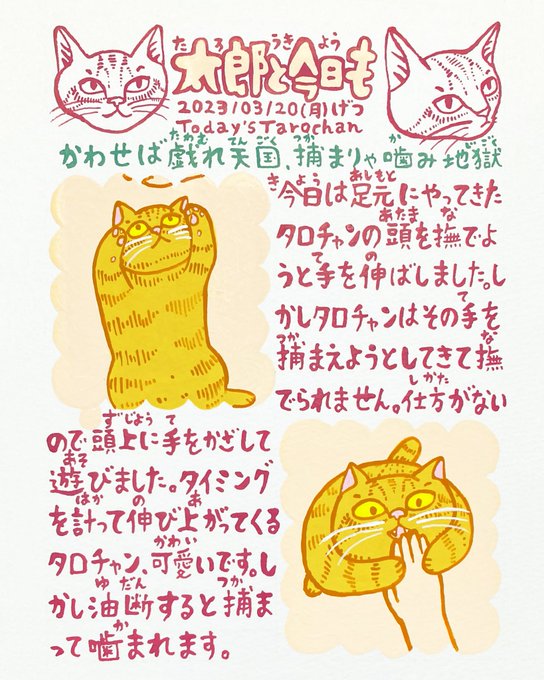 太郎と今日も
2023/03/20(月)げつ
Today'sTarochan
かわせば戯れ天国、捕まりゃ噛み地獄
今日は足元にやってきた
タロチャンの頭を撫でよ
うと手を伸ばしました。し
かしタロチャンはその手を
捕まえようとしてきて撫
でられません。仕方がない
ので頭上に手をかざして
遊びました。タイミング
を計って伸び上がってくる
タロチャン、可愛いです。し
かし油断すると捕ま
って噛まれます。